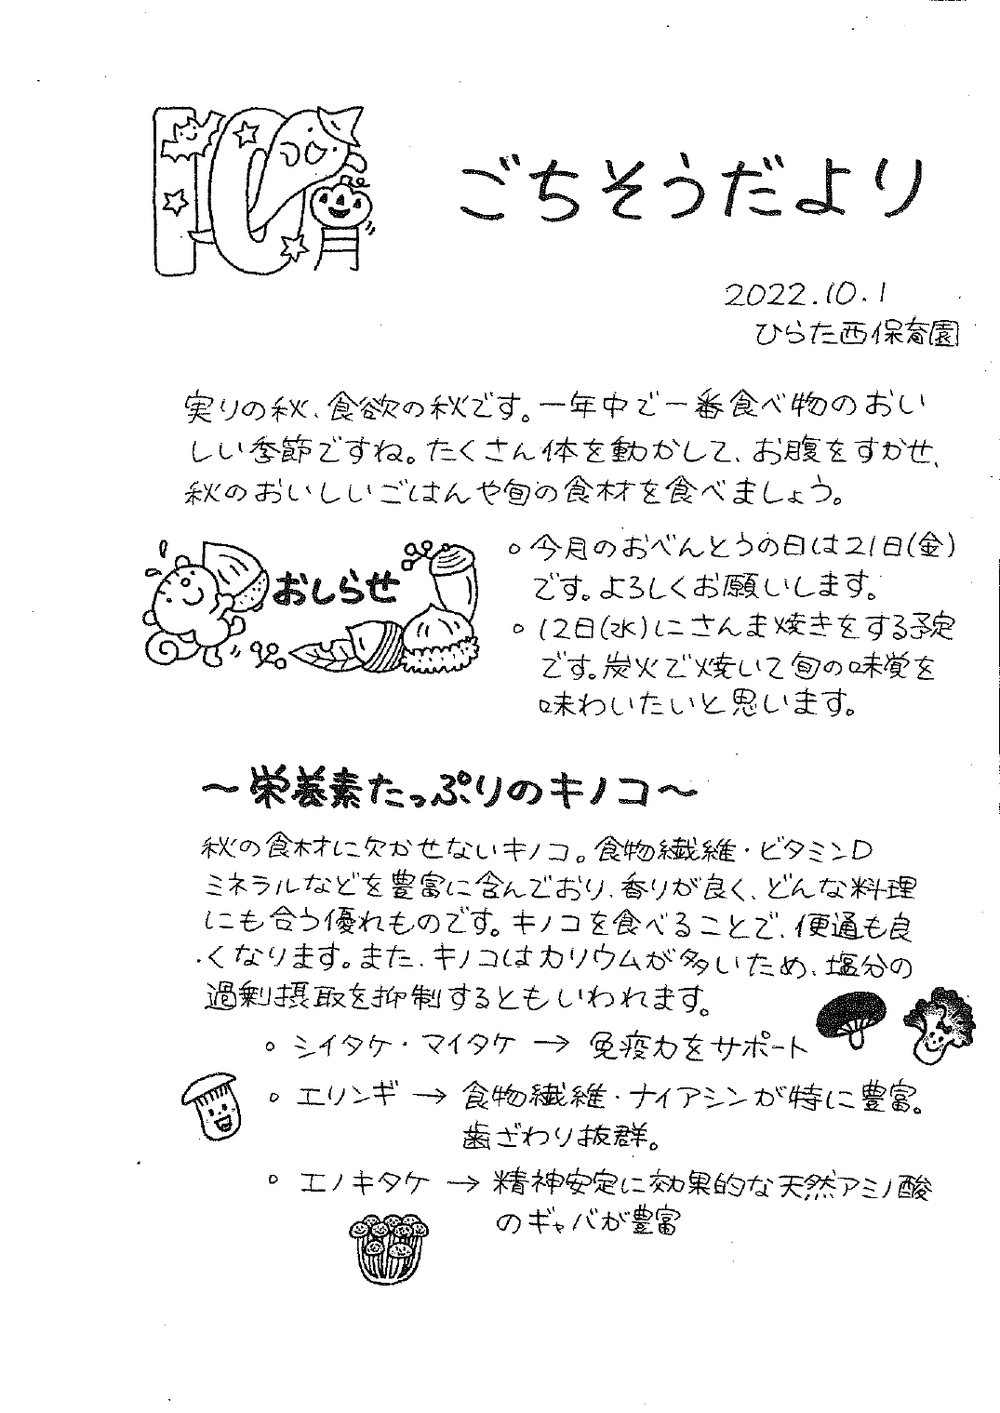 10
ごちそうだより
2022.10.1
ひらた西保育園
実りの秋、食欲の秋です。一年中で一番食べ物のおい
しい季節ですね。たくさん体を動かして、お腹をすかせ、
秋のおいしいごはんや旬の食材を食べましょう。
おしらせ
○ 今月のおべんとうの日は21日(金)
です。よろしくお願いします。
○ 12日(水)にさんま焼きをする予定
です。炭火で焼いて旬の味覚を
味わいたいと思います。
～栄養素たっぷりのキノコ～
秋の食材に欠かせないキノコ。食物繊維・ビタミンD
ミネラルなどを豊富に含んでおり、香りが良く、どんな料理
にも合う優れものです。キノコを食べることで、便通も良
くなります。また、キノコはカリウムが多いため、塩分の
過剰摂取を抑制するともいわれます。
○ シイタケ・マイタケ → 免疫力をサポート
○ エリンギ → 食物繊維・ナイアシンが特に豊富。
歯ざわり抜群。
○ エノキタケ → 精神安定に効果的な天然アミノ酸
のギャバが豊富